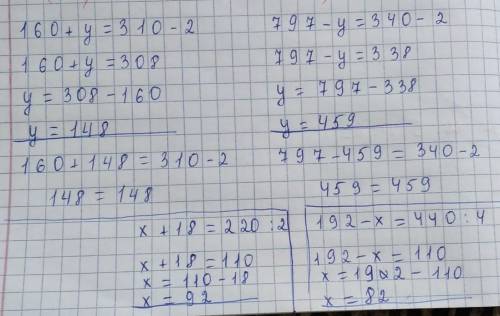 160 + y = 310 - 2
160 + y = 308
y = 308 - 160
y = 148
160 + 148 = 310 - 2
148 = 148
797 - y = 340 - 2
797 - y = 338
y = 797 - 338
y = 459
797 - 459 = 340 - 2
459 = 459
x + 18 = 220 : 2
x + 18 = 110
x = 110 - 18
x = 92
192 - x = 440 : 4
192 - x = 110
x = 192 - 110
x = 82